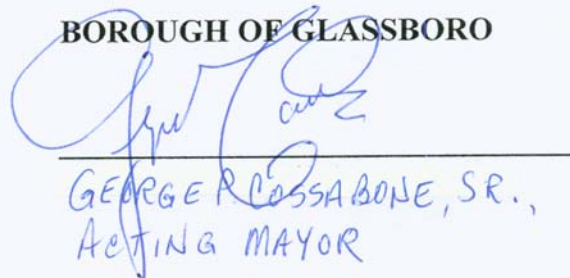 BOROUGH OF GLASSBORO
GEORGE P COSSABONE, SR.,
ACTING MAYOR